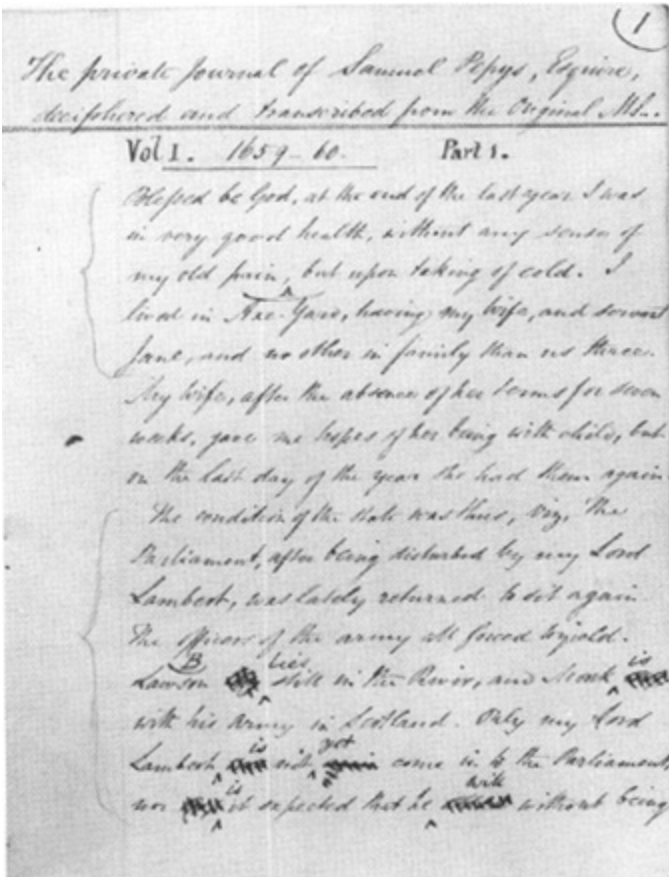 1
The private Journal of Samuel Pepys, Esquire,
deciphered and transcribed from the Original MS..
Vol I. 1659-60. Part 1.
Blessed be God, at the end of the last year I was
in very good health, without any sense of
my old pain, but upon taking of cold. I
lived in Axe-Yard, having my wife, and servant
Jane, and no other in family than us three.
My wife, after the absence of her terms for seven
weeks, gave me hopes of her being with child, but
on the last day of the year she had them again.
The condition of the state was thus, viz, The
Parliament, after being disturbed by my Lord
Lambert, was lately returned to sit again
The officers of the army all forced to yield.
B lies is
Lawson still in the River, and Monk
with his army in Scotland. Only my Lord
is yet
Lambert not come in to the Parliament,
is will
nor it expected that he without being